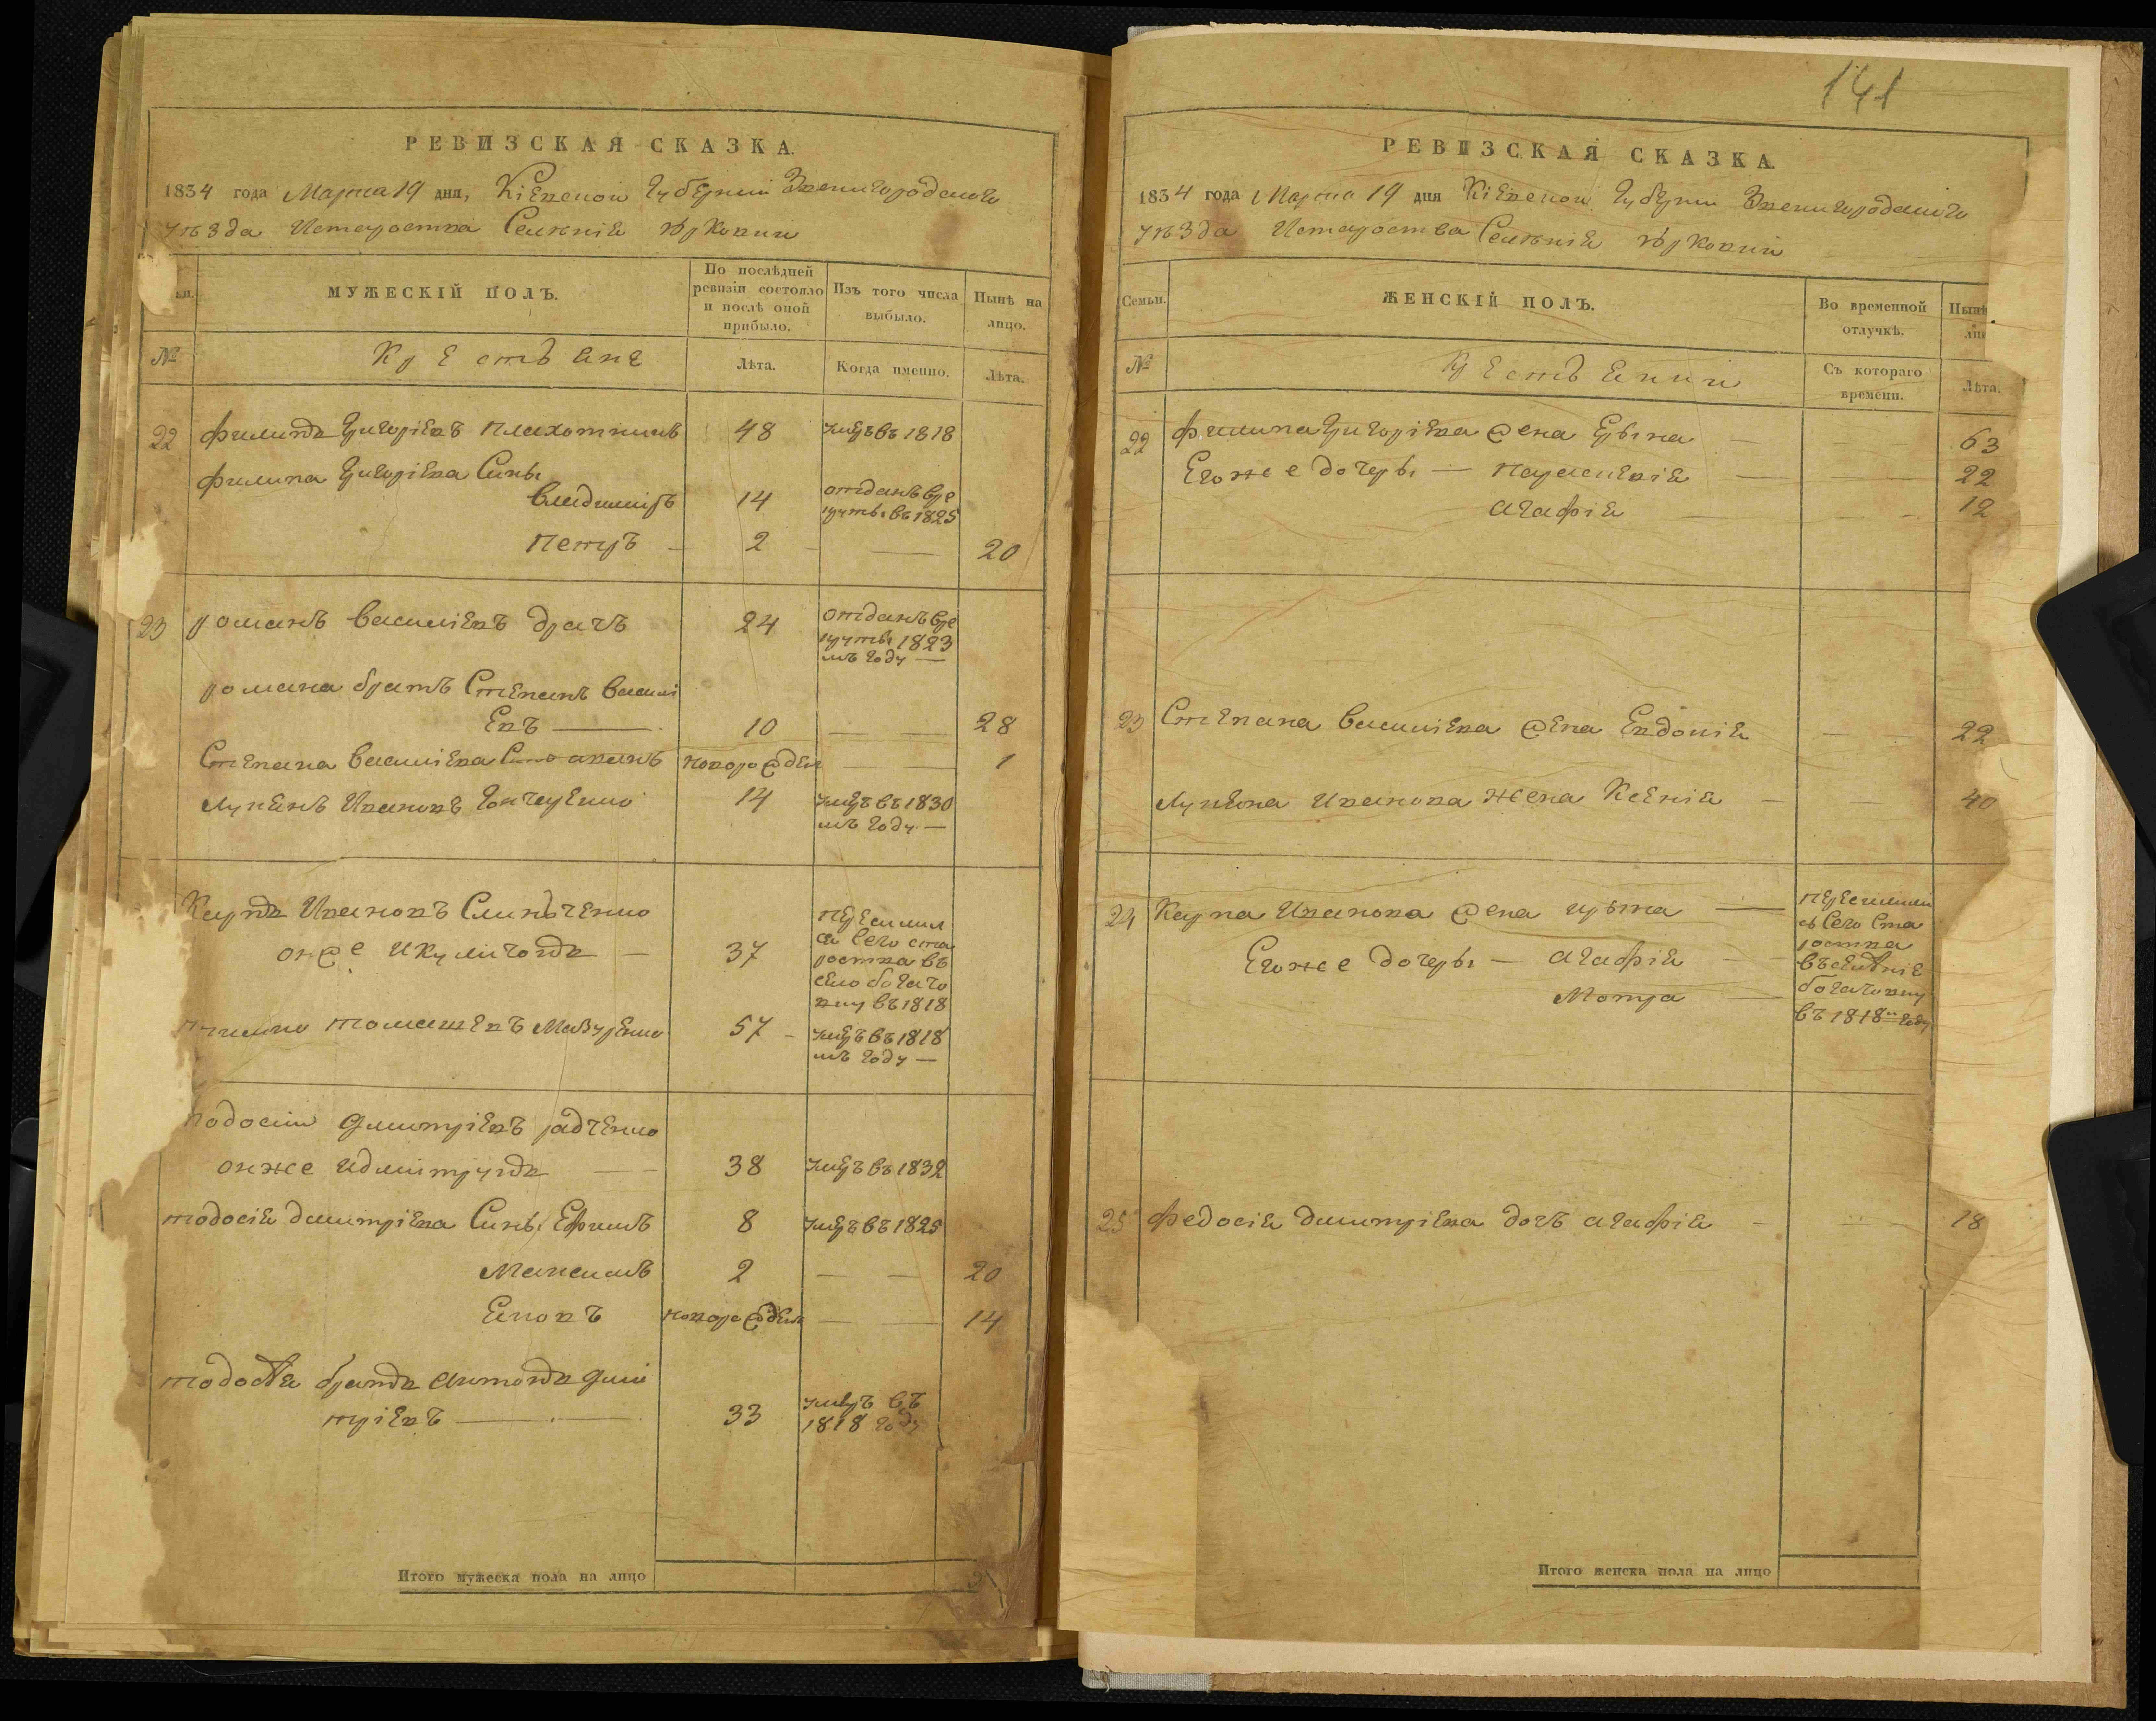 РЕВИЗСКАЯ СКАЗКА.
1834 года Марта 19 дня, Кіевской Губерніи Звенигородскаго
уѣзда Истароства Селѣнія
МУЖЕСКІЙ ПОЛЪ.
По послѣдней ревизіи состояло и послѣ оной прибыло.
Изъ того числа выбыло.
Нынѣ на лицо.
№
Крестьяне
Лѣта.
Когда именно.
Лѣта.
22 Филипъ Григоріевъ Плахотникъ 48 умеръ въ 1818
Филипа Григоріева Сины
Владимиръ 14 отданъ вре
круты въ 1825
Петръ 2 20
23 романъ Василіевъ драчъ 24 отданъ вре
круты 1823
мъ Году
романа братъ Степанъ Василі
евъ 10 28
Степана Василіева Синъ иванъ новорожден 1
Лукянъ Ивановъ Гончаренко 14 умеръ въ 1830
мъ Году
Карпъ Ивановъ Слинченко
онже и Куличовъ 37 переселил
ся Сего ста
роства въ
село богачо
вку въ 1818
томашевъ Мазуренко 57 умеръ въ 1818
мъ Году
тодосій Дмитріевъ радченко
онже идмитрувъ 38 умеръ въ 1832
тодосія дмитріева Сины Ефимъ 8 умеръ въ 1825
Максимъ 2 20
Яковъ новорожден 14
тодосія братъ Антонъ Дми
тріевъ 33 умеръ въ
1818 Году
Итого мужеска пола на лицо
141
РЕВИЗСКАЯ СКАЗКА.
1834 года Марта 19 дня Кіевской Губерніи Звенигородскаго
уѣзда Истароства Селѣнія
Семьи.
ЖЕНСКІЙ ПОЛЪ.
Во временной отлучкѣ.
Нынѣ
№
Крестьянки
Съ котораго времени.
Лѣта.
22 Филипа Григоріева жена Ирина 63
Егоже дочеры — Параскевія 22
Агафія 12
23 Степана Василіева жена Евдокія 22
Лукяна Иванова жена Ксенія 40
24 Карпа Иванова жена
Егоже дочеры — Агафія
Мотра
переселили
съ Сего Ста
роства
въ селѣніе
богачовку
въ 1818м году
25 Федосія дмитріева дочъ агафія 18
Итого женска пола на лицо